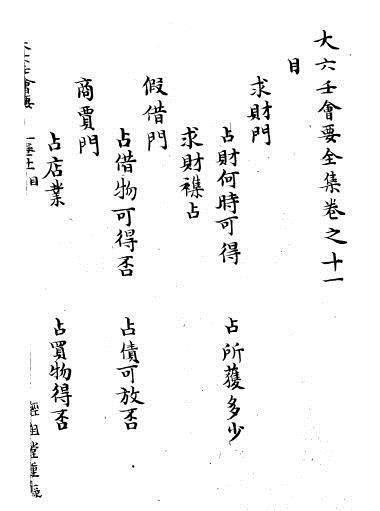 大六壬會要全集卷之十一
目
求財門
占財何時可得 占所獲多少
求財襍占
假借門
占借物可得否 占債可放否
商賈門
占店業 占買物得否